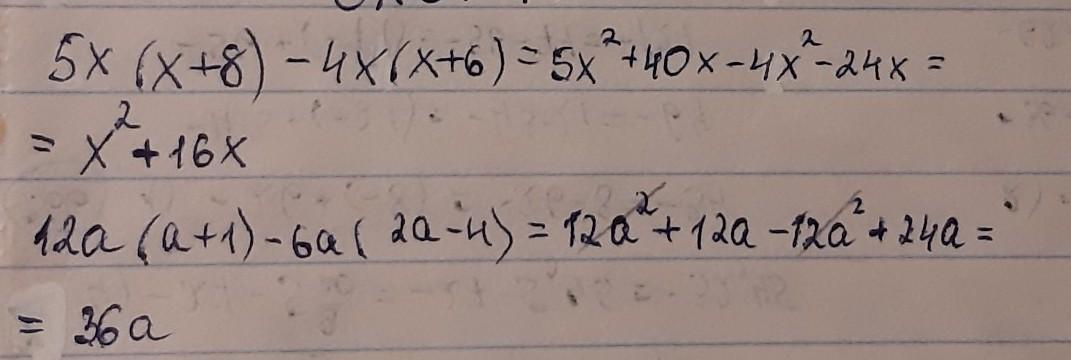 5x (x+8) - 4x(x+6) = 5x²+40x-4x²-24x =
= x²+16x
12a (a+1) - 6a( 2a-4) = 12a²+12a-12a²+24a =
= 36a